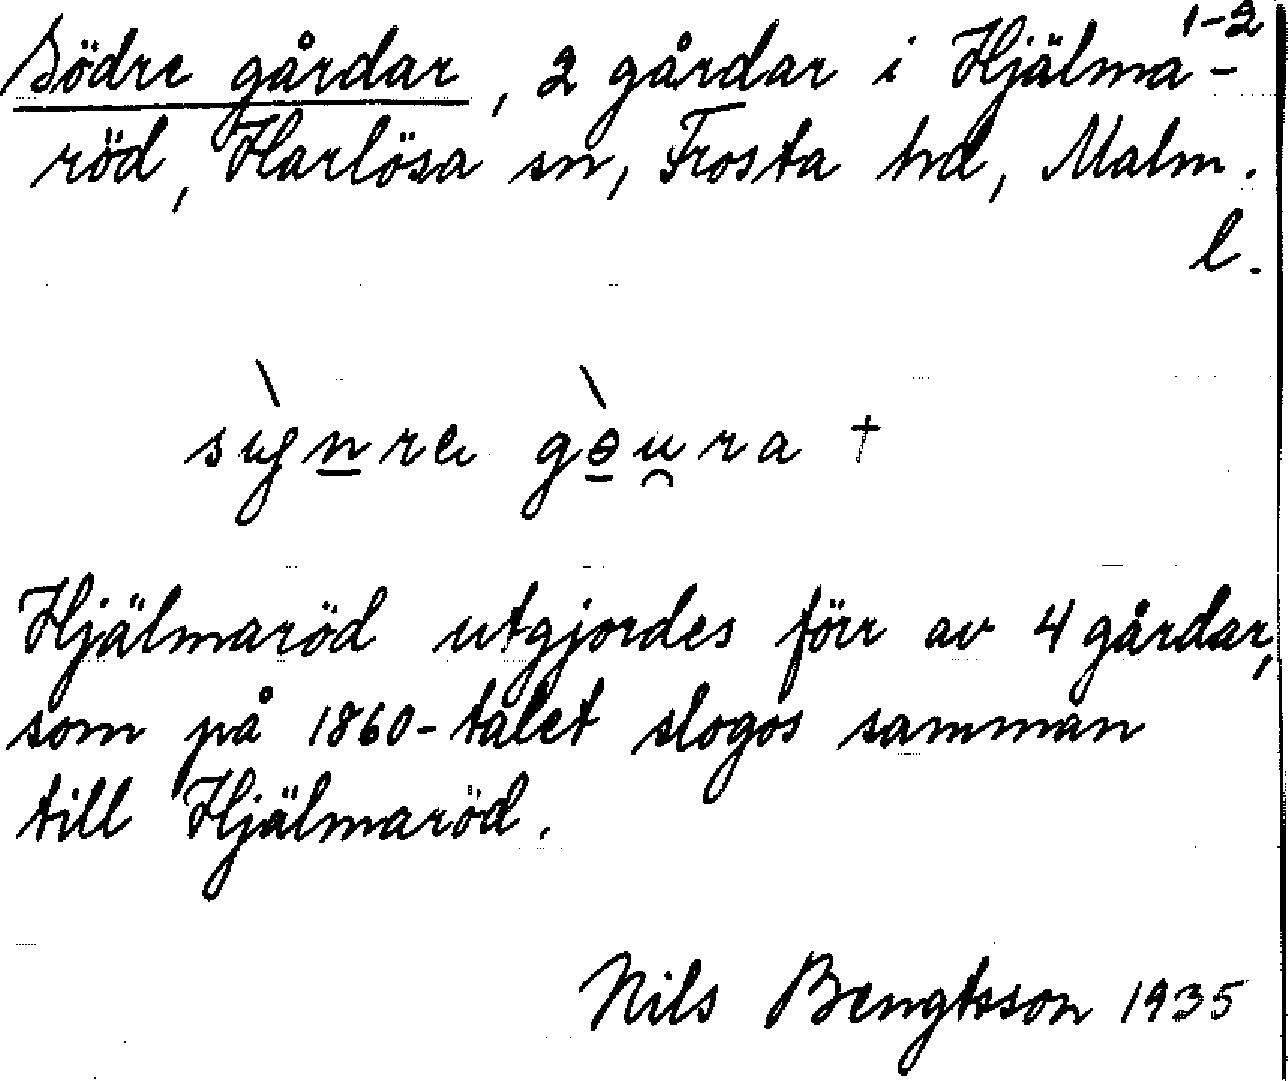 1-2
Södre gårdar, 2 gårdar i Hjälma-
röd, Harlösa sn, Frosta hd, Malm.
l.
Hjälmaröd utgjordes förr av 4 gårdar,
som på 1860-talet slogos samman
till Hjälmaröd.
Nils Bengtsson 1935